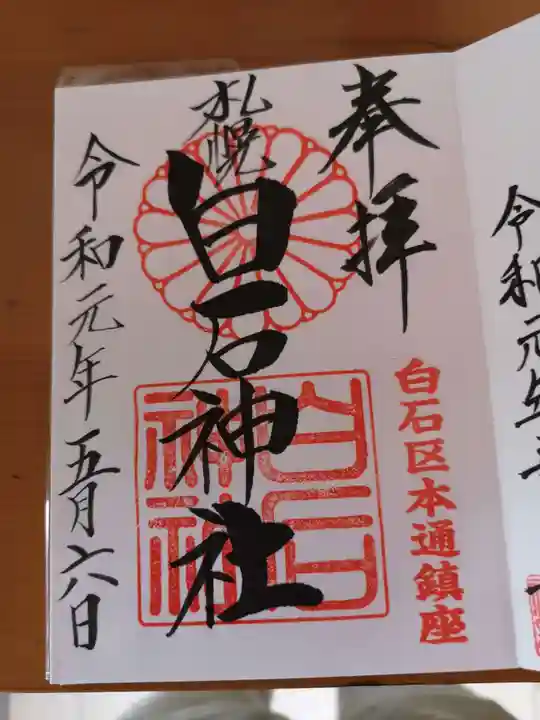 奉拝
白石区本通鎮座
札幌
白石神社
白石神社
令和元年五月六日
令和元年五